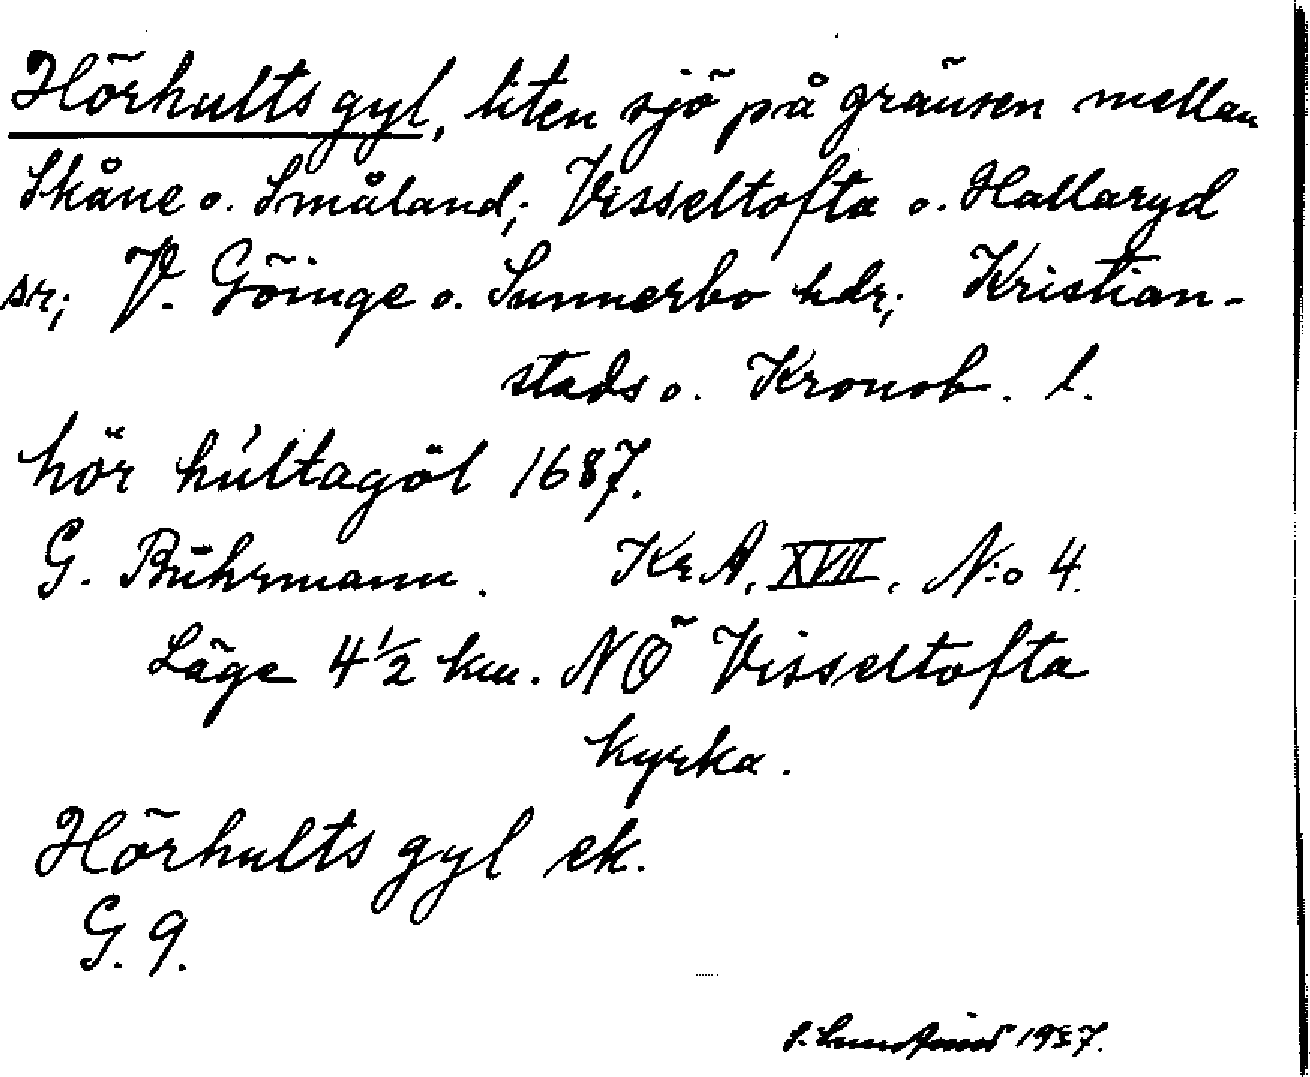 Hörhults gyl, liten sjö på gränsen mellan
Skåne o. Småland; Visseltofta o. Hallaryd
sr; V. Göinge o. Sunnerbo hdr; Kristian-
stads o. Kronob. l.
hör húltagöl 1687.
G. Buhrmann. Kr A. XVII. N:o 4.
Läge 4 1/2 km. NÖ Visseltofta
kyrka.
Hörhults gyl ek.
G. 9.
1937.